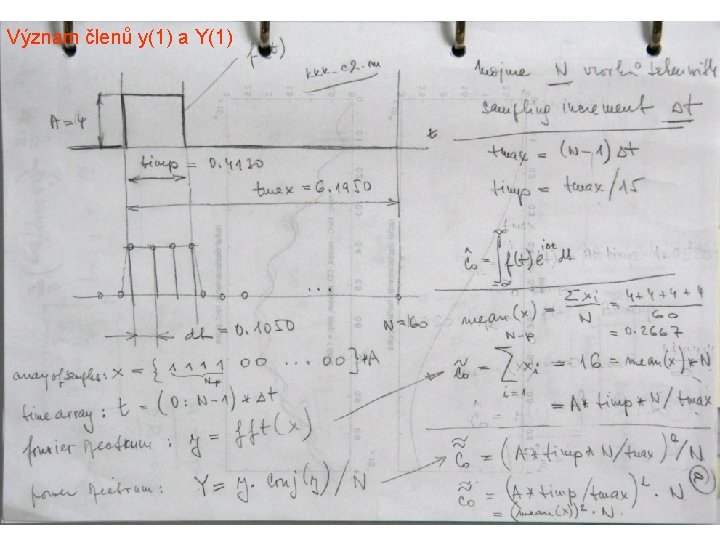 Význam členů y(1) a Y(1)
f(t)
kkk_c2.m
A = 4
t
timp = 0.4130
tmax = 6.1950
...
dt = 0.1050
N = 60
array of samples: x = { 1 1 1 1 0 0 ... 0 0 } * A
Np
time array: t = (0: N-1) * Δt
fourier spectrum: y = fft(x)
power spectrum: Y = y. conj(y) / N
mějme N vzorků
sampling increment Δt
tmax = (N-1) Δt
timp = tmax/15
ĉ₀ = ∫ f(t) e dt
mean(x) = Σxi / N = 4+4+4+4 / 60
= 0.2667
c̃₀ = Σ xi = 16 = mean(x) * N
i=1
= A * timp * N / tmax
c̃₀ = (A * timp * N / tmax)² / N
c̃₀ = (A * timp / tmax)² . N
= (mean(x))² . N.